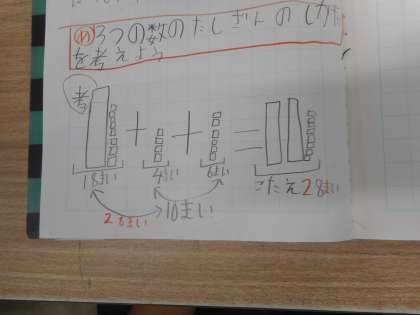 め 3つの数のたしざんのしかた
を考えよう
考
18まい 4まい 6まい こたえ28まい
28まい 10まい